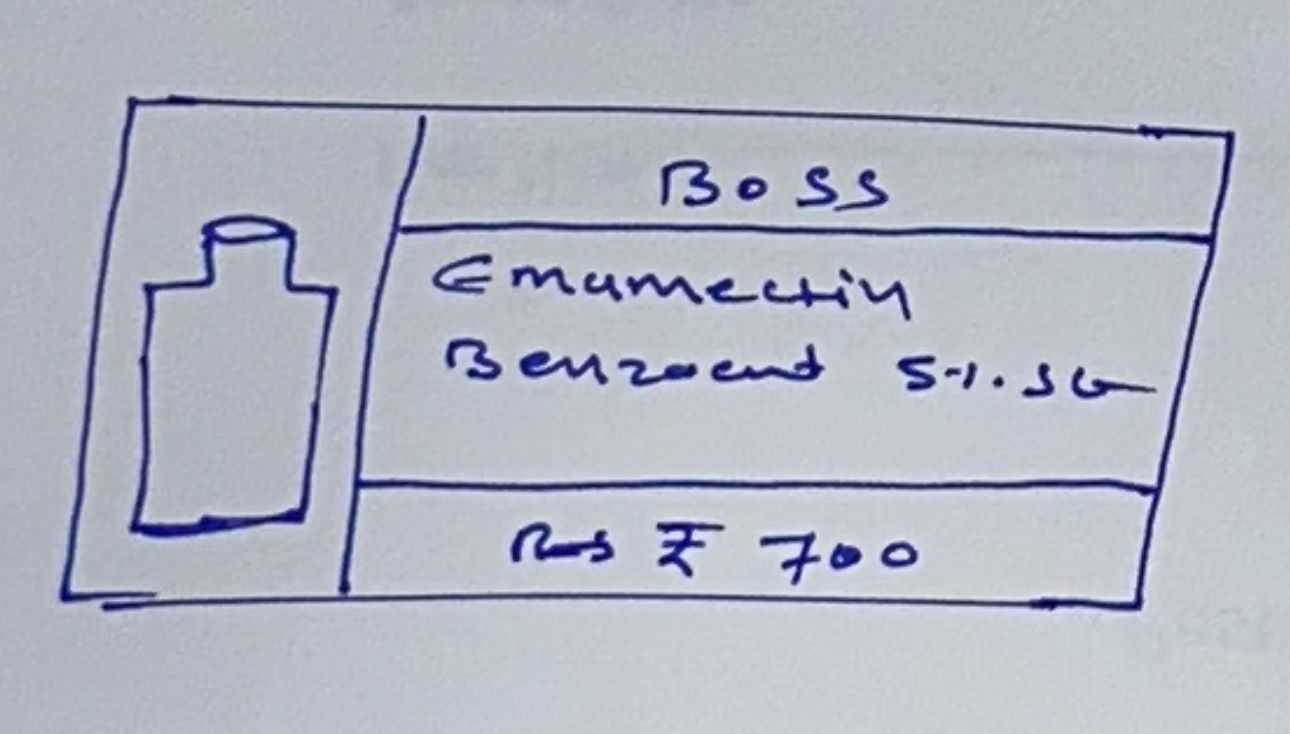 BOSS
Emamectin
Benzoent 5%. SG
₹ 700